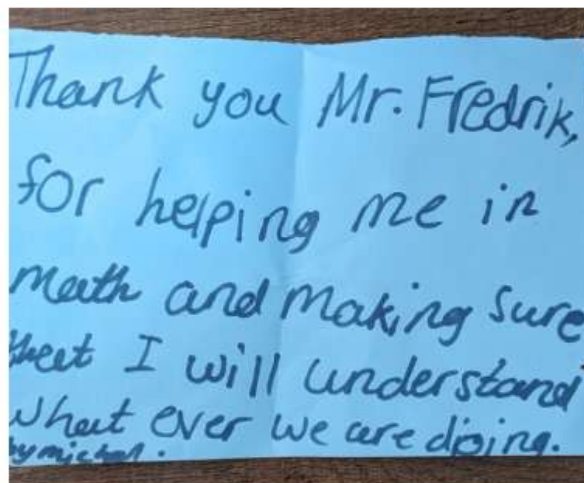 Thank you Mr. Fredrik,
for helping me in
math and making sure
that I will understand
what ever we are doing.
by michal.